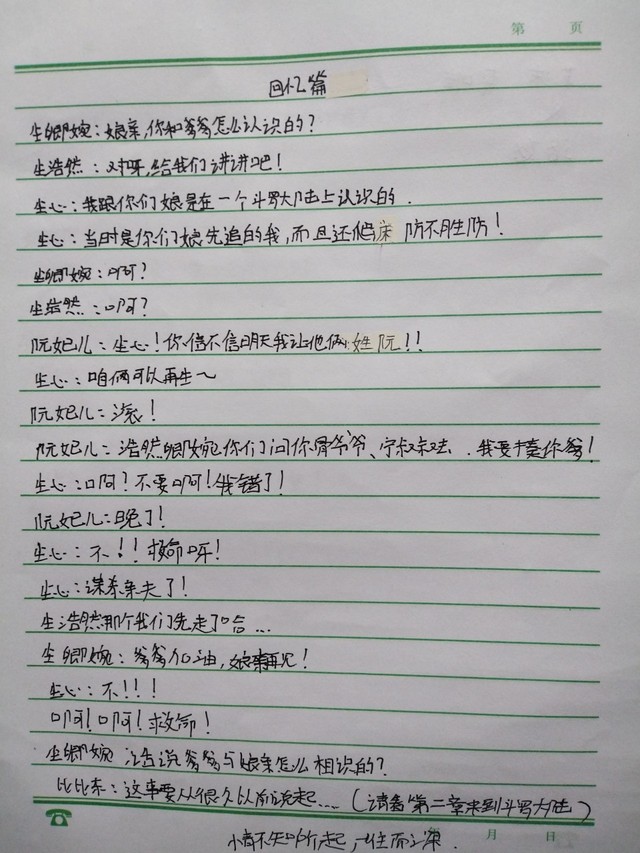 第 页
回忆篇
尘卿婉：娘亲，你和爹爹怎么认识的？
尘浩然：对呀，给我们讲讲吧！
尘心：我跟你们娘是在一个斗罗大陆上认识的．
尘心：当时是你们娘先追的我，而且还爬床 防不胜防！
尘卿婉：啊？
尘浩然：啊？
阮妃儿：尘心！你信不信明天我让他俩姓阮！！
尘心：咱俩可以再生～
阮妃儿：滚！
阮妃儿：浩然卿婉你们问你骨爷爷、宁叔叔去．我要揍你爹！
尘心：啊？不要啊！我错了！
阮妃儿：晚了！
尘心：不！！救命呀！
尘心：谋杀亲夫了！
尘浩然那个我们先走了哈…
尘卿婉：爹爹加油，娘亲再见！
尘心：不！！！
啊！啊！救命！
尘卿婉 话说爹爹与娘亲怎么相识的？
比比东：这事要从很久以前说起……（请看第二章来到斗罗大陆）
年 月 日
情不知所起，一往而深．